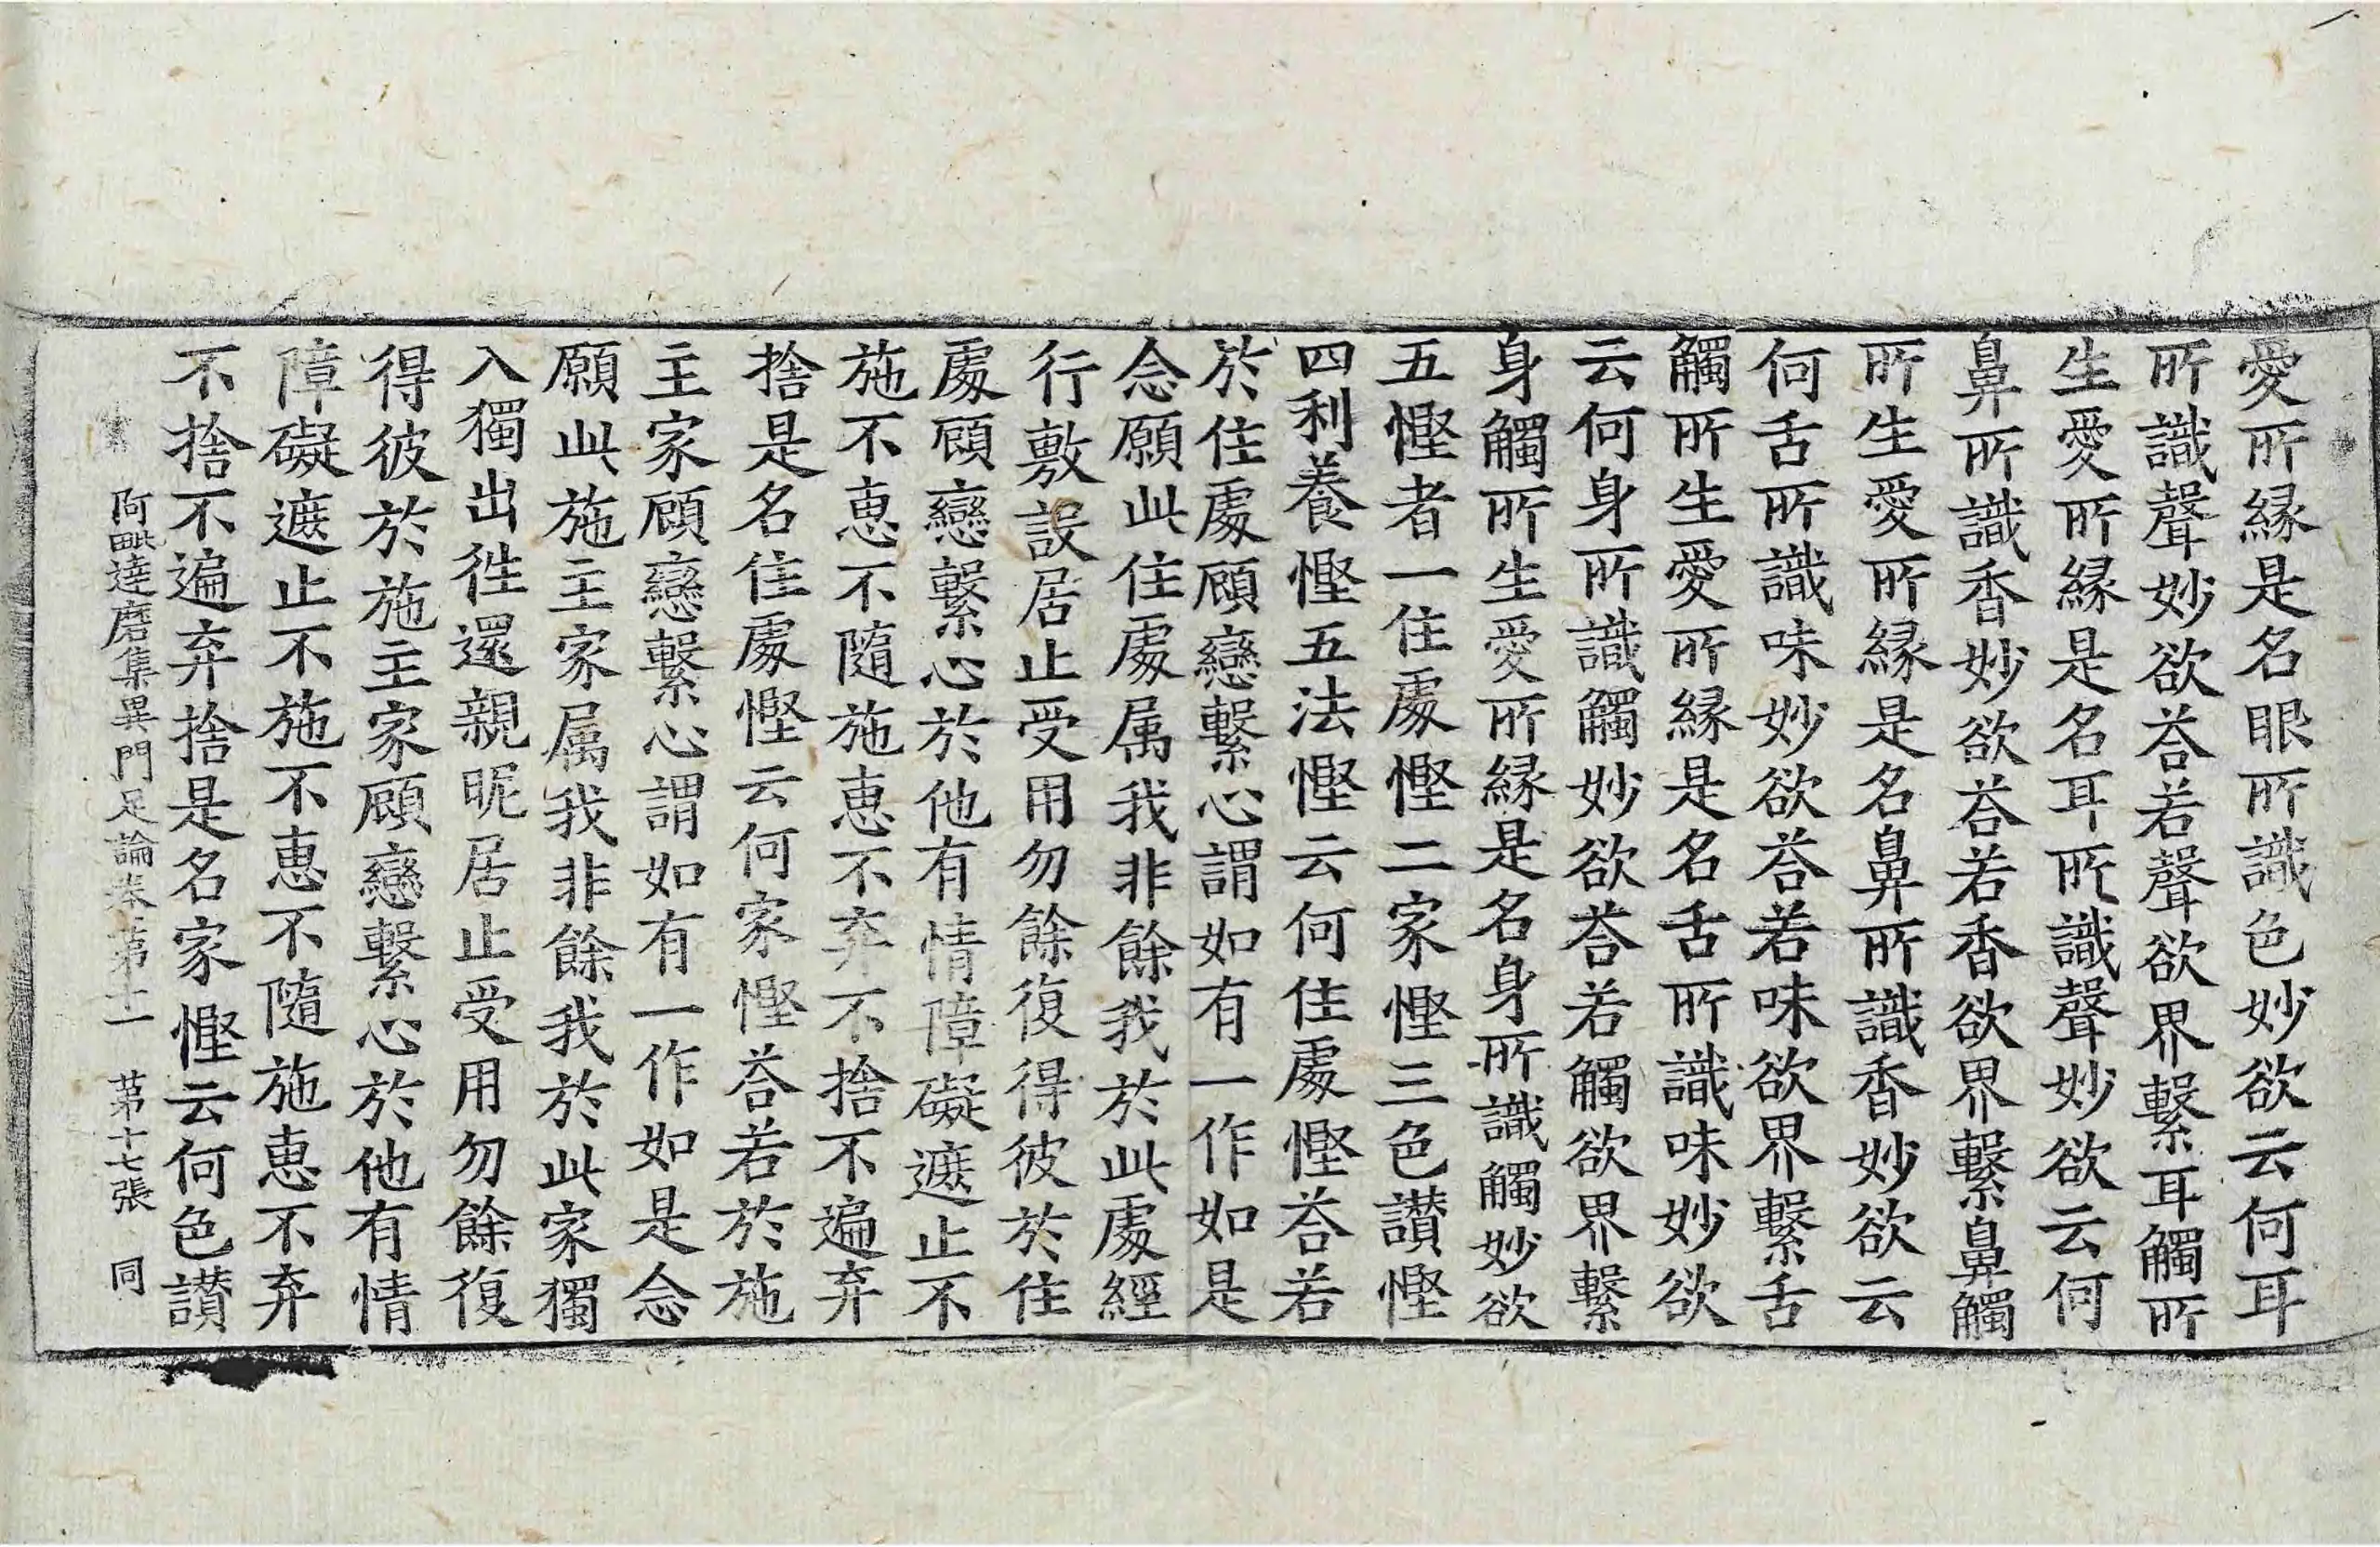 愛所縁是名眼所識色妙欲云何耳
所識聲妙欲荅若聲欲界繫耳觸所
生愛所縁是名耳所識聲妙欲云何
鼻所識香妙欲荅若香欲界繫鼻觸
所生愛所縁是名鼻所識香妙欲云
何舌所識味妙欲荅若味欲界繫舌
觸所生愛所縁是名舌所識味妙欲
云何身所識觸妙欲荅若觸欲界繫
身觸所生愛所縁是名身所識觸妙欲
五慳者一住處慳二家慳三色讃慳
四利養慳五法慳云何住處慳荅若
於住處顧戀繫心謂如有一作如是
念願此住處属我非餘我於此處經
行敷設居止受用勿餘復得彼於住
處顧戀繫心於他有情障礙遮止不
施不惠不隨施惠不弃不捨不遍弃
捨是名住處慳云何家慳荅若於施
主家顧戀繫心謂如有一作如是念
願此施主家属我非餘我於此家獨
入獨出往還親昵居止受用勿餘復
得彼於施主家顧戀繫心於他有情
障礙遮止不施不惠不隨施惠不弃
不捨不遍弃捨是名家慳云何色讃
阿毗達磨集異門足論卷第十一 第十七張 同